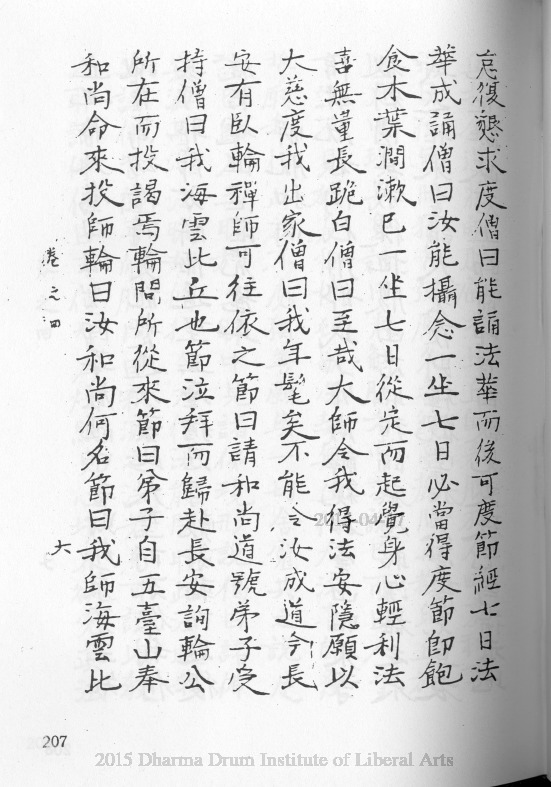 哀復懇求度僧曰能誦法華而後可度節經七日法
華成誦僧曰汝能攝念一坐七日必當得度節即飽
食木葉澗漱已一坐七日從定而起覺身心輕利法
喜無量長跪白僧曰至哉大師令我得法安隱願以
大慈度我出家僧曰我年髦矣不能令汝成道今長
安有臥輪禪師可往依之節曰請和尚道號弟子受
持僧曰我海雲比丘也節泣拜而歸赴長安詢輪公
所在而投謁焉輪問所從來節曰弟子自五臺山奉
和尚命來投師輪曰汝和尚何名節曰我師海雲比
卷之四
六
207
2015 Dharma Drum Institute of Liberal Arts